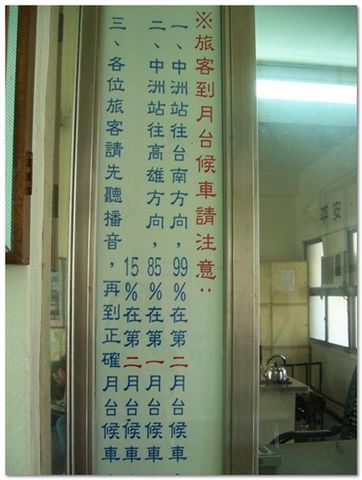 ※旅客到月台候車請注意：
一、中洲站往台南方向，99%在第二月台候車
二、中洲站往高雄方向，85%在第一月台候車
15%在第二月台候車
三、各位旅客請先聽播音，再到正確月台候車
安平